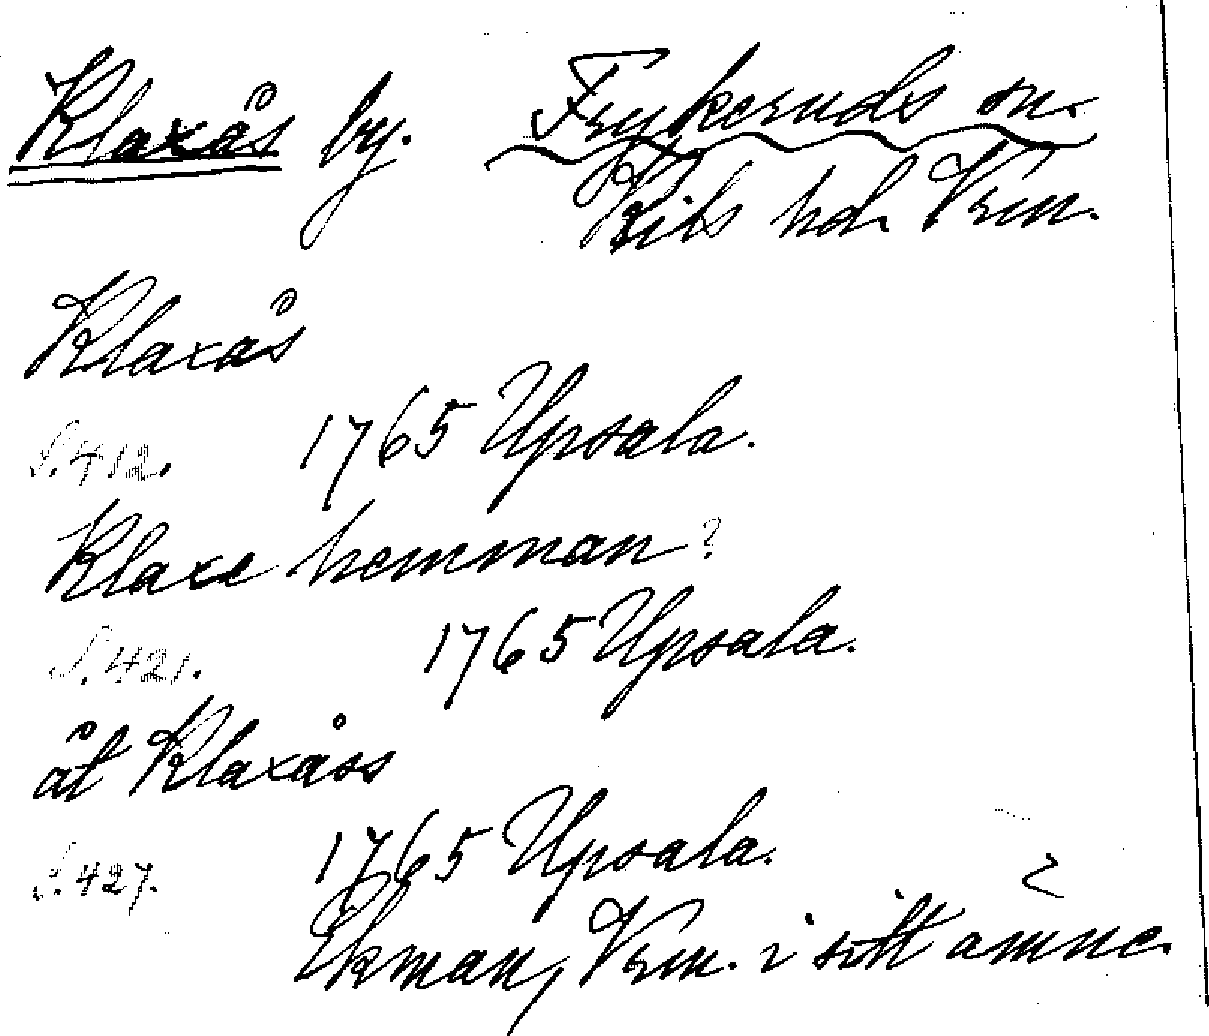 Klaxås by. Frykeruds sn.
Kils hd. Vrm.
Klaxås
S. 412. 1765 Upsala.
Klaxe hemman?
S. 421. 1765 Upsala.
åt Klaxåss
S. 427. 1765 Upsala.
Ekman, Vrm. i sitt ämne.